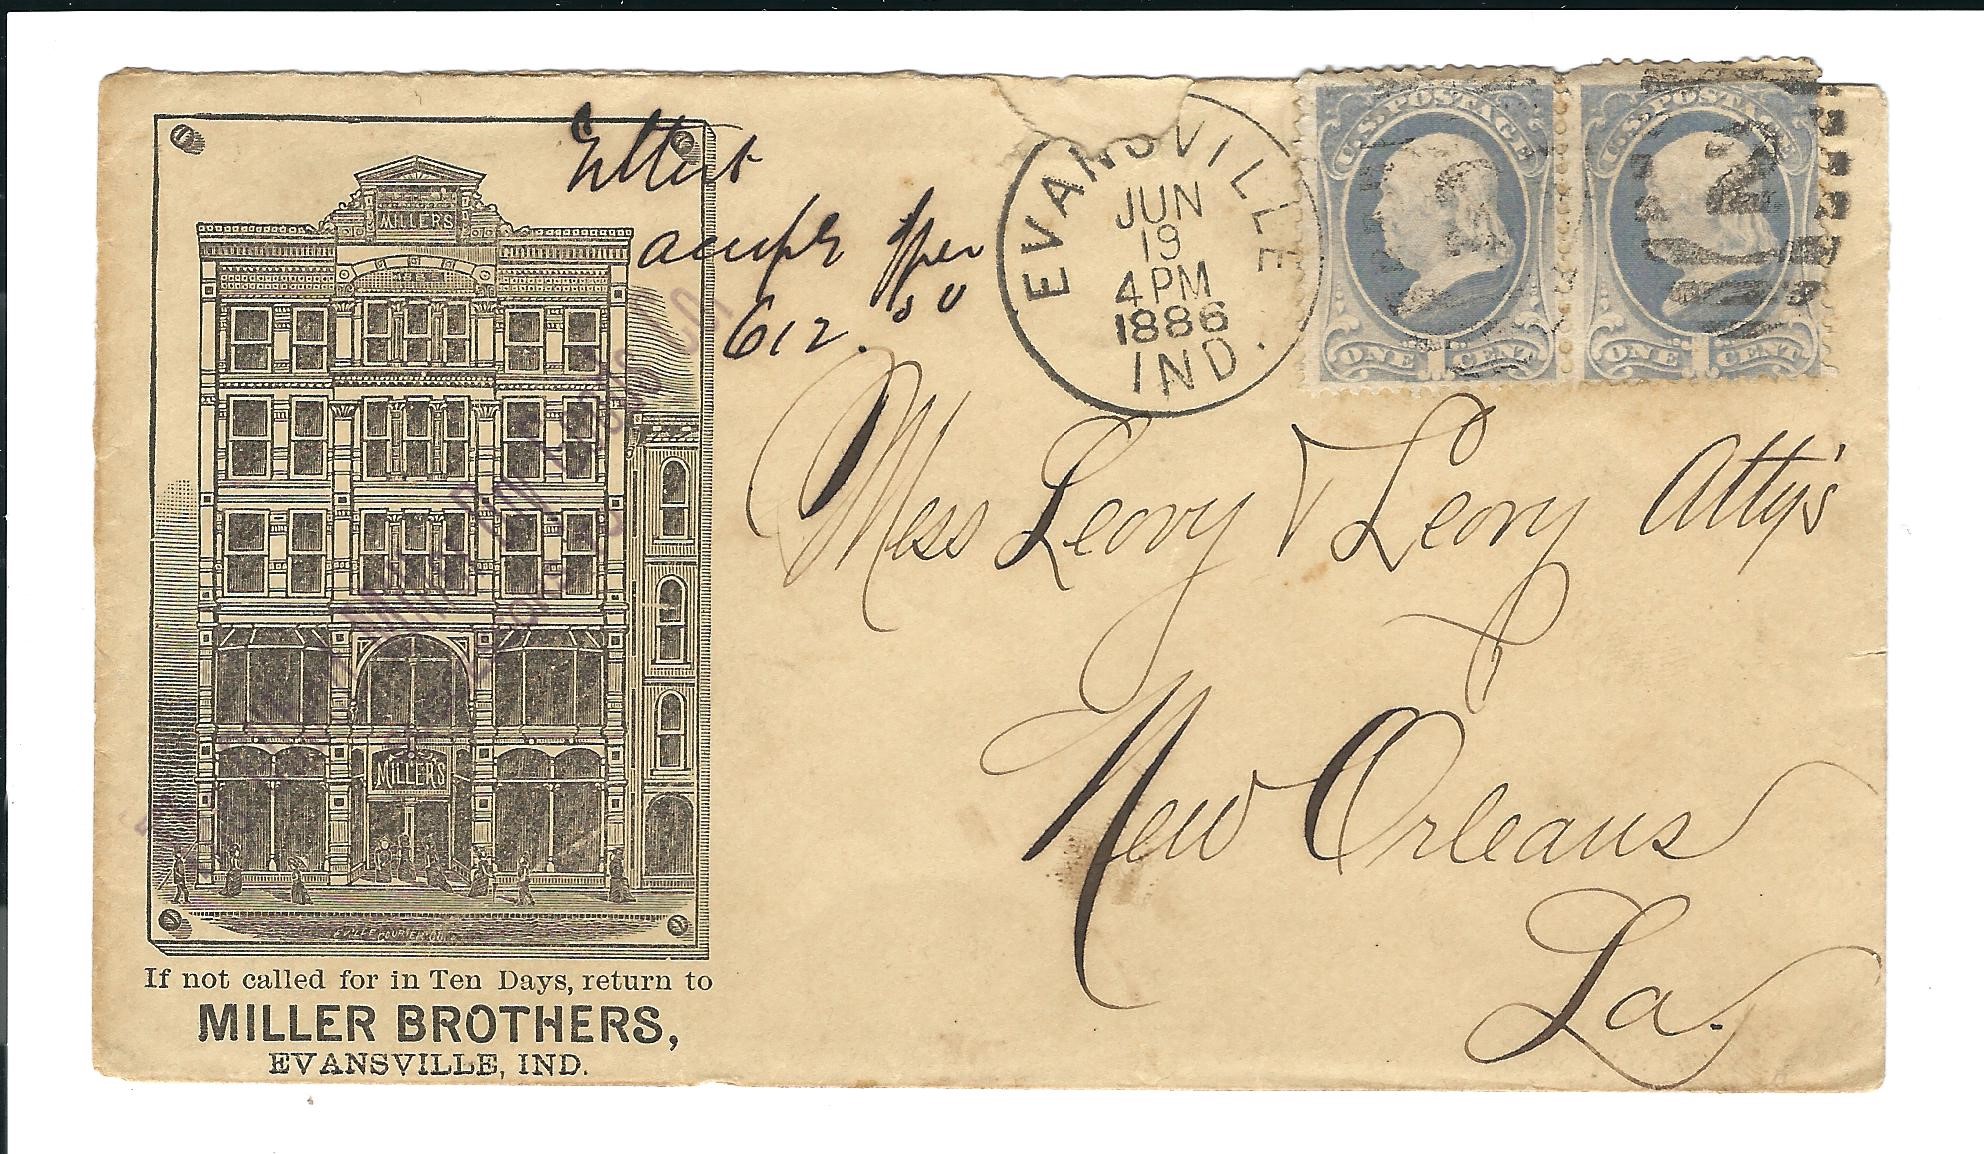 MILLERS
MILLERS
If not called for in Ten Days, return to
MILLER BROTHERS,
EVANSVILLE, IND.
612.
EVANSVILLE
JUN
19
4 PM
1886
IND.
U.S. POSTAGE
ONE 1 CENT
U.S. POSTAGE
ONE 1 CENT
2
Mess Leovy & Leovy Atty's
New Orleans
La.